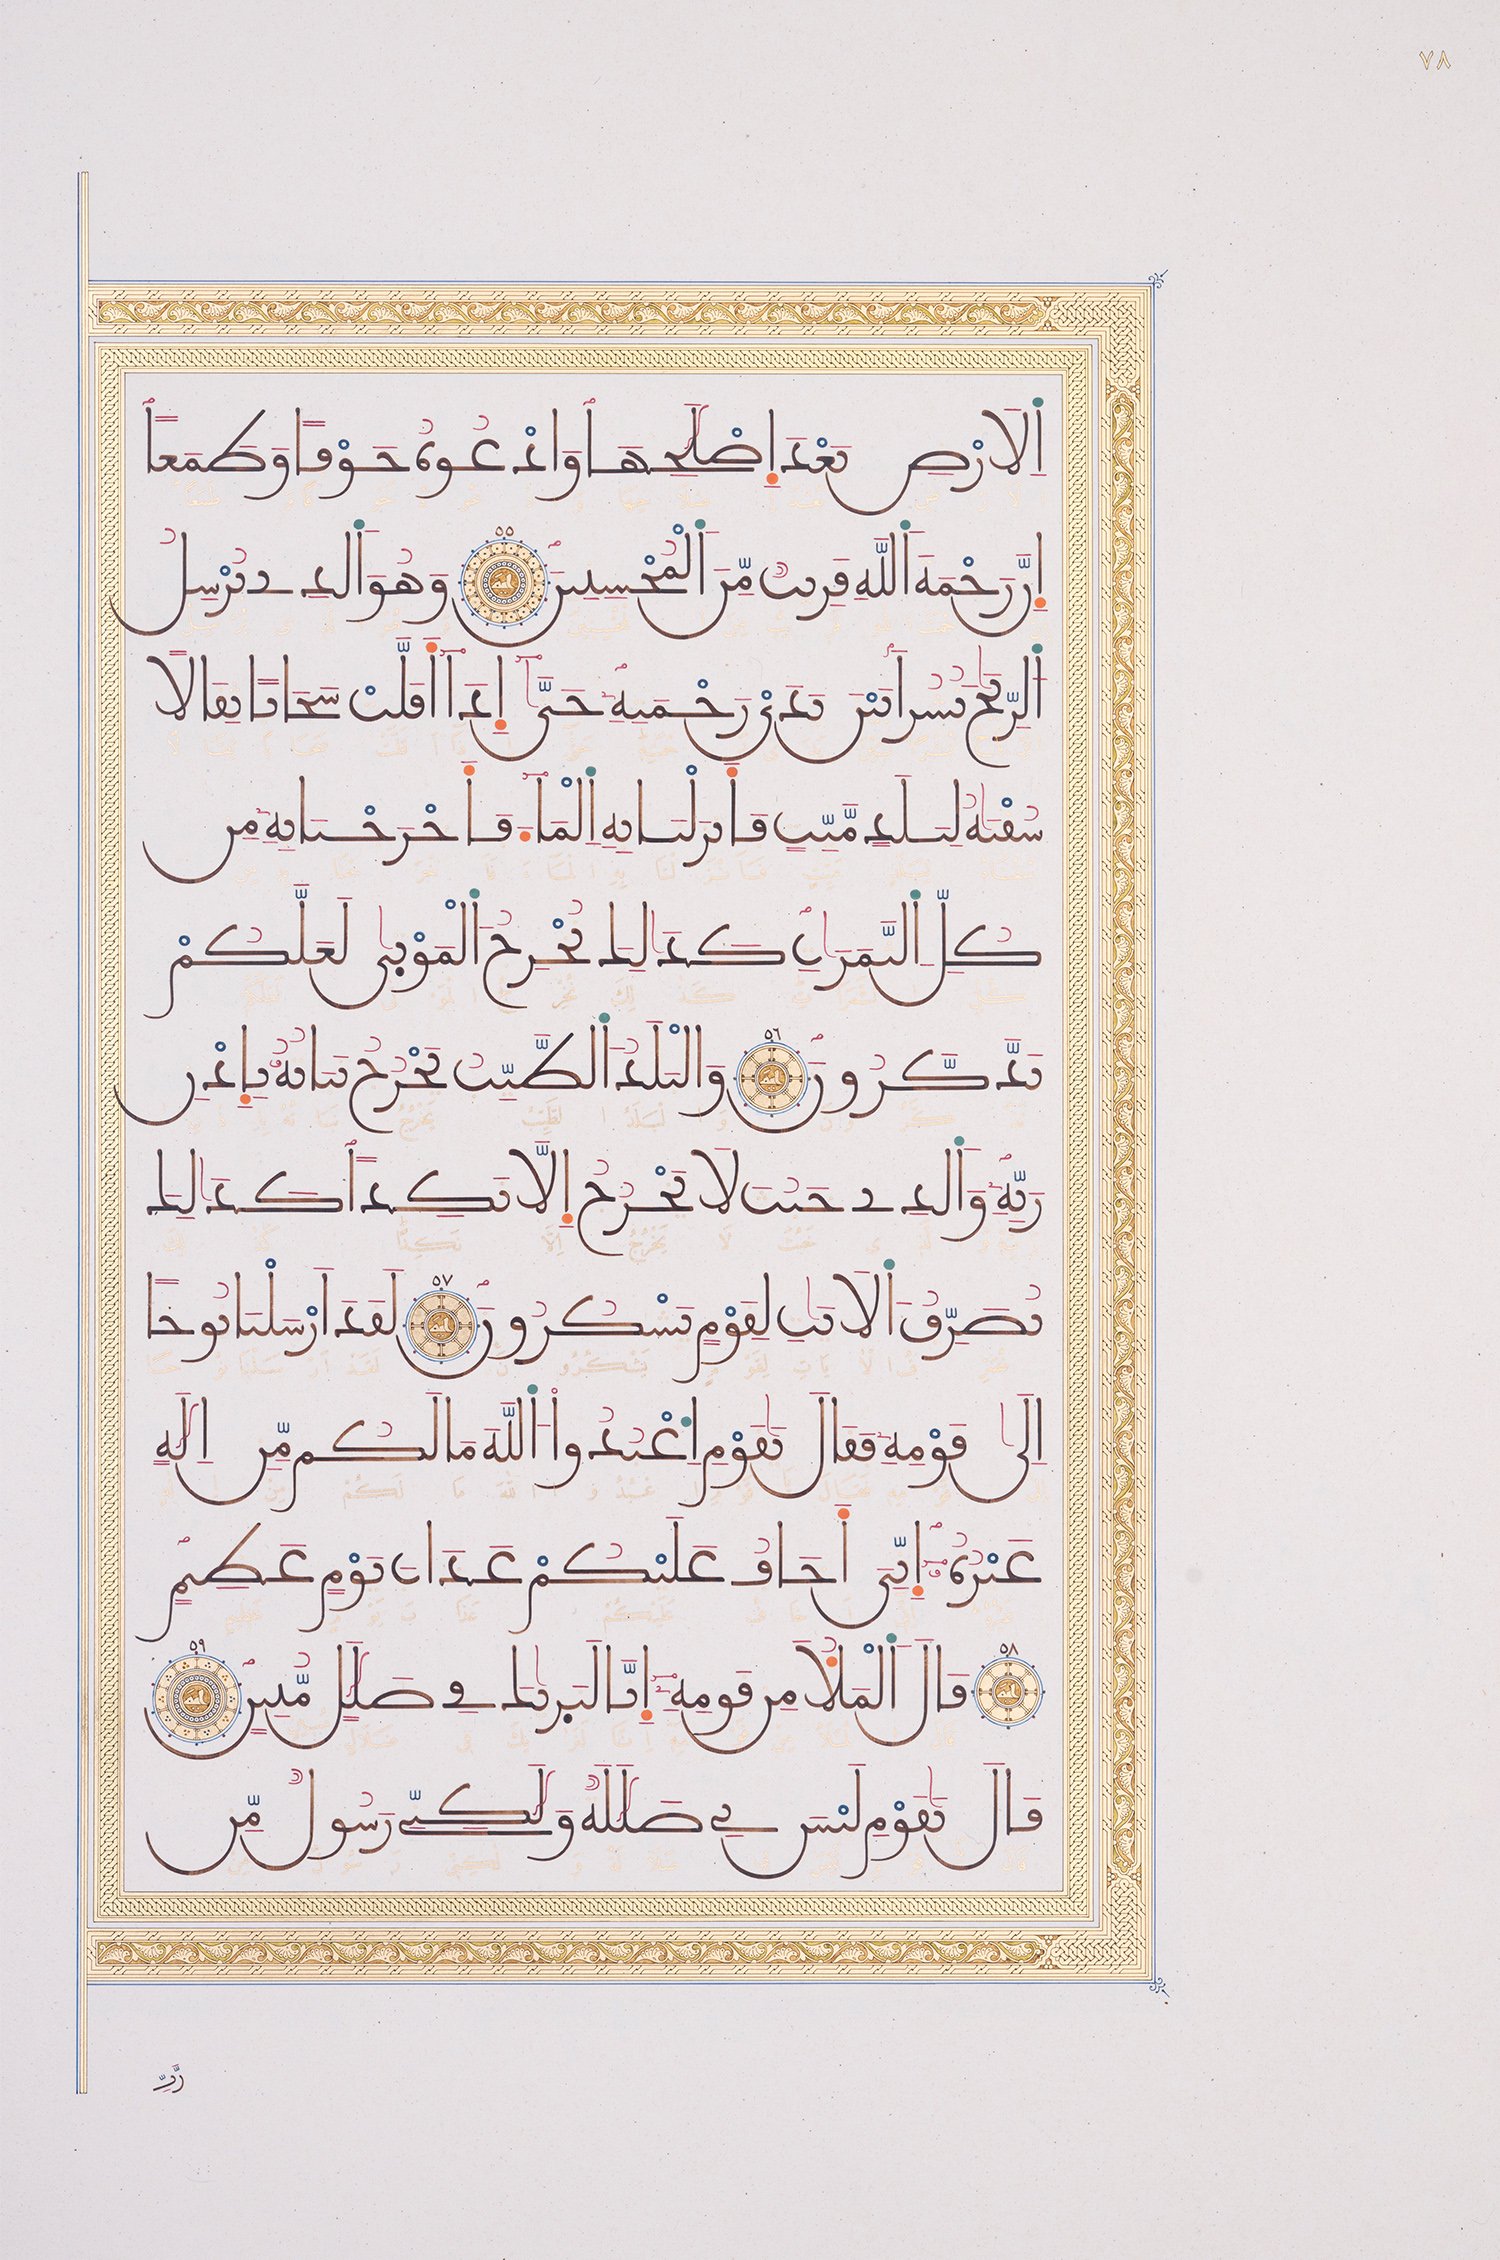 ٧٨
اَلَارْضِ بَعْدَ إِصْلَٰحِهَا وَادْعُوهُ خَوْفًا وَطَمَعًا
إِنَّ رَحْمَةَ اَللَّهِ قَرِيبٌ مِّنَ اَلْمُحْسِنِينَ ٥٥ وَهُوَ اَلَّذِي يُرْسِلُ
اُلرِّيَٰحَ نُشُرًا بَيْنَ يَدَيْ رَحْمَتِهِ حَتَّىٰ إِذَا أَقَلَّتْ سَحَابًا ثِقَالًا
سُقْنَٰهُ لِبَلَدٍ مَّيِّتٍ فَأَنزَلْنَا بِهِ اِلْمَآءَ فَأَخْرَجْنَا بِهِ مِن
كُلِّ اِلثَّمَرَٰتِ كَذَٰلِكَ نُخْرِجُ اُلْمَوْتَىٰ لَعَلَّكُمْ
تَذَّكَّرُونَ ٥٦ وَالْبَلَدُ اُلطَّيِّبُ يَخْرُجُ نَبَاتُهُ بِإِذْنِ
رَبِّهِ وَالَّذِي خَبُثَ لَا يَخْرُجُ إِلَّا نَكِدًا كَذَٰلِكَ
نُصَرِّفُ اُلَايَٰتِ لِقَوْمٍ يَشْكُرُونَ ٥٧ لَقَدَ اَرْسَلْنَا نُوحًا
اِلَىٰ قَوْمِهِ فَقَالَ يَٰقَوْمِ اِعْبُدُواْ اُللَّهَ مَا لَكُم مِّنِ اِلَٰهٍ
غَيْرُهُ إِنِّيَ أَخَافُ عَلَيْكُمْ عَذَابَ يَوْمٍ عَظِيمٍ
٥٨ قَالَ اَلْمَلَأُ مِن قَوْمِهِ إِنَّا لَنَرَىٰكَ فِي ضَلَٰلٍ مُّبِينٍ ٥٩
قَالَ يَٰقَوْمِ لَيْسَ بِي ضَلَٰلَةٌ وَلَٰكِنِّي رَسُولٌ مِّن
رَّبِّ